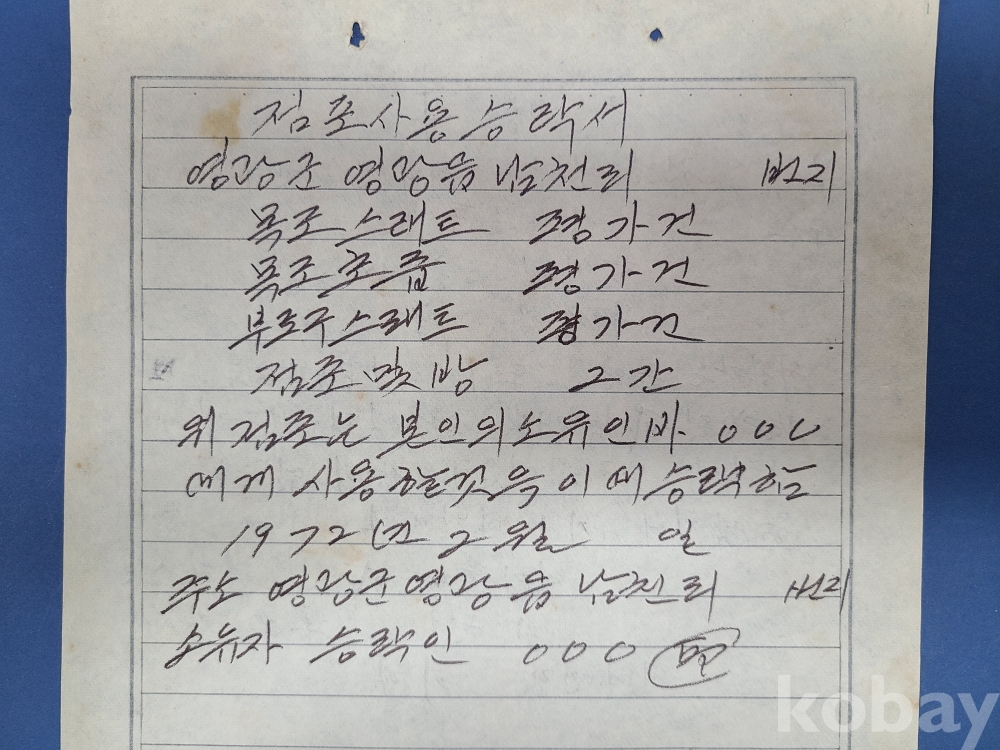 점포사용승락서
영광군 영광읍 남천리 번지
목조 스래트 평가건
목조초즙 평가건
부로구스래트 평가건
점포및방 2간
위 점포는 본인의 소유인바 000
에게 사용할것을 이에 승락함
1972년 2월 일
주소 영광군영광읍 남천리 번지
소유자 승락인 000
kobay